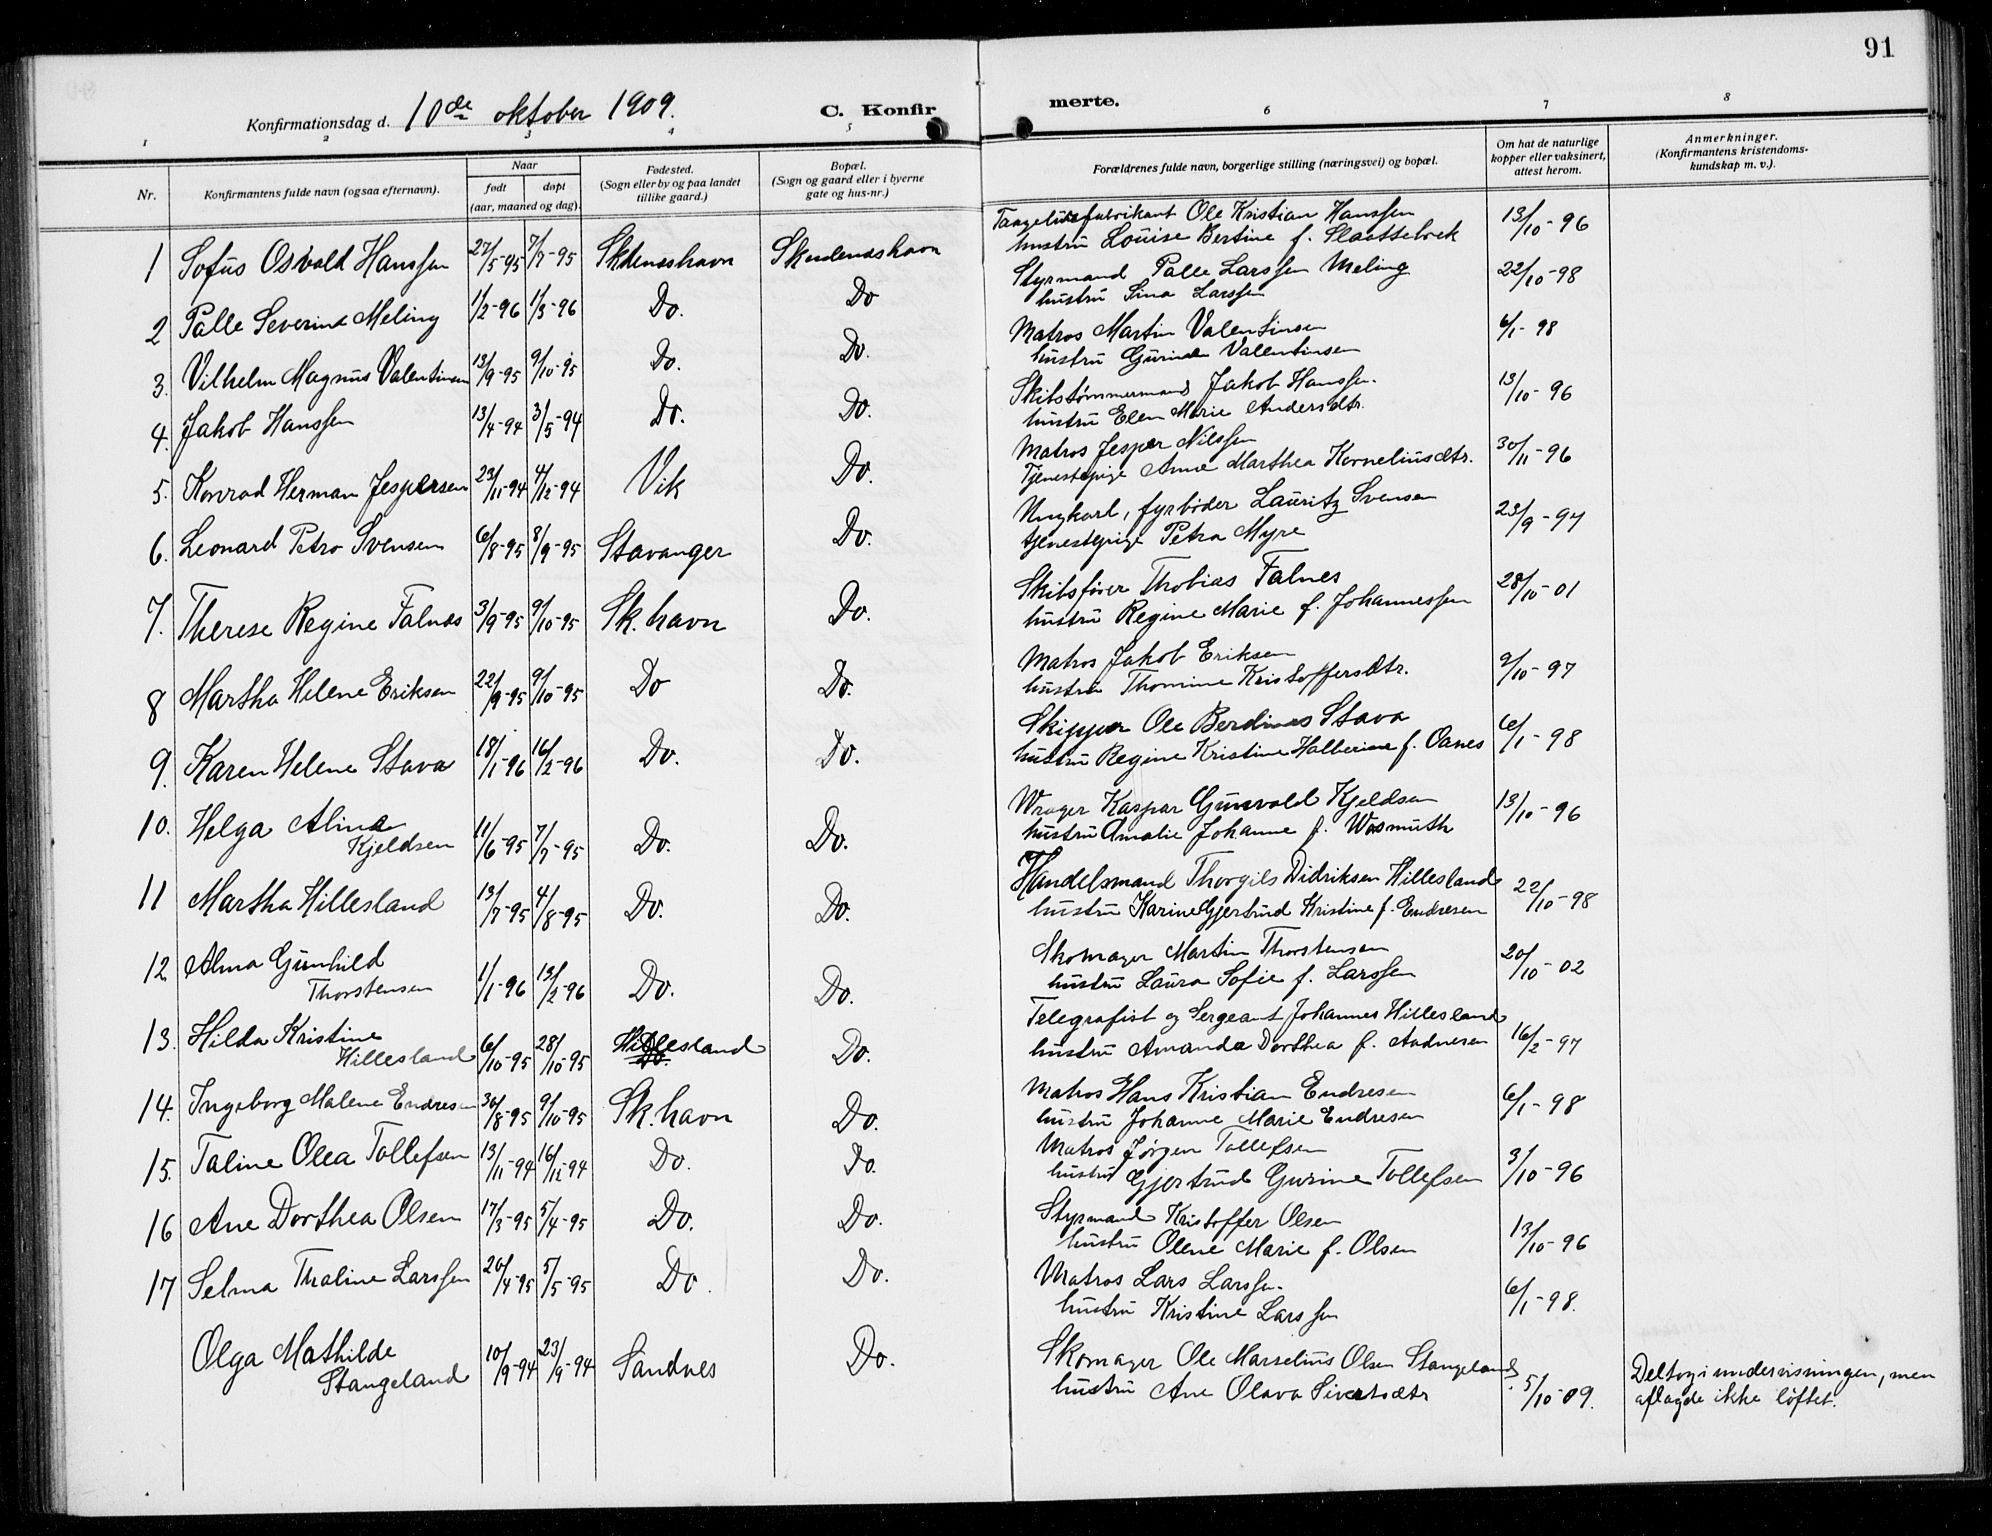 91
Konfirmationsdag d. 10de oktober 1909. C. Konfirmerte.
1 2 3 4 5 6 7 8
Nr.
Konfirmantens fulde navn (ogsaa efternavn).
Naar
født døpt
(aar, maaned og dag).
Fødested.
(Sogn eller by og paa landet
tillike gaard.)
Bopæl.
(Sogn og gaard eller i byerne
gate og hus-nr.)
Forældrenes fulde navn, borgerlige stilling (næringsvei) og bopæl.
Om hat de naturlige
kopper eller vaksinert,
attest herom.
Anmerkninger.
(Konfirmantens kristendoms-
kundskap m. v.).
1 Sofus Osvald Hanssen 27/5-95 7/7-95 Skdeneshavn Skudeneshavn
fabrikant Ole Kristian Hanssen
hustru Louise Bertine f. Slaattebrek 13/10-96
2 Palle Severin Meling 1/2-96 1/3-96 Do. Do
Styrmand Palle Larssen Meling
hustru Sina Larssen 22/10-98
3. Vilhelm Magnus Valentinsen 13/9-95 9/10-95 Do. Do.
Matros Martin Valentinsen
hustru Gurine Valentinsen 6/1-98
4. Jakob Hanssen 13/4-94 3/5-94 Do. Do.
Skibstømmermand Jakob Hanssen.
hustru Elen Marie Andersdtr. 13/10-96
5. Konrad Herman Jespersen 23/11-94 4/12-94 Vik Do.
Matros Jesper Nilssen
Tjenestepige Anne Marthea Korneliusdtr. 30/11-96
6. Leonard Petro Svensen 6/8-95 8/9-95 Stavanger Do.
Ungkarl, fyrbøder Lauritz Svensen
tjenestepige Petra Myre 23/9-97
7. Therese Regine Falnes 3/9-95 9/10-95 Sk.havn Do.
Skibsfører Thobias Falnes
hustru Regine Marie f. Johannessen 28/10-01
8 Martha Helene Eriksen 22/9-95 9/10-95 Do Do.
Matros Jakob Eriksen
hustru Thomine Kristoffersdtr. 9/10-97
9. Karen Helene Stava 18/1-96 16/2-96 Do. Do.
Skipper Ole Berdines Stava
hustru Regine Kristine Halberine f. Oanes 6/1-98
10. Helga Alina
Kjeldsen 11/6-95 7/7-95 Do. Do.
Vrager Kaspar Gunvald Kjeldsen
hustru Amalie Johanne f. Wasmuth 13/10-96
11 Martha Hillesland 13/7-95 4/8-95 Do. Do.
Handelsmand Thorgils Didriksen Hillesland
hustru Karine Gjertrud Kristine f. Endresen 22/10-98
12 Alma Gunhild
Thorstensen 1/1-96 13/2-96 Do. Do.
Skomager Martin Thorstensen
hustru Laura Sofie f. Larssen 20/10-02
13. Hilda Kristine
Hillesland 6/10-95 28/10-95 Hillesland Do.
Telegrafist og Sergeant Johannes Hillesland
hustru Amanda Dorthea f. Aadnesen 16/2-97
14. Ingeborg Malene Endresen 30/8-95 9/10-95 Sk.havn Do.
Matros Hans Kristian Endresen
hustru Johanne Marie Endresen 6/1-98
15. Taline Olea Tollefsen 13/11-94 16/12-94 Do. Do.
Matros Jørgen Tollefsen
hustru Gjertrud Gurine Tollefsen 3/10-96
16 Ane Dorthea Olsen 17/3-95 5/4-95 Do. Do.
Styrmand Kristoffer Olsen
hustru Olene Marie f. Olsen 13/10-96
17 Selma Thaline Larssen 20/4-95 5/5-95 Do. Do.
Matros Lars Larssen.
hustru Kristine Larssen 6/1-98.
Olga Mathilde
Stangeland 10/9-94 23/9-94 Sandnes Do.
Skomager Ole Marselius Olsen Stangeland
hustru Ane Olava Sivertsdtr 5/10-09.
Deltog i undervisningen, men
aflagde ikke løftet.